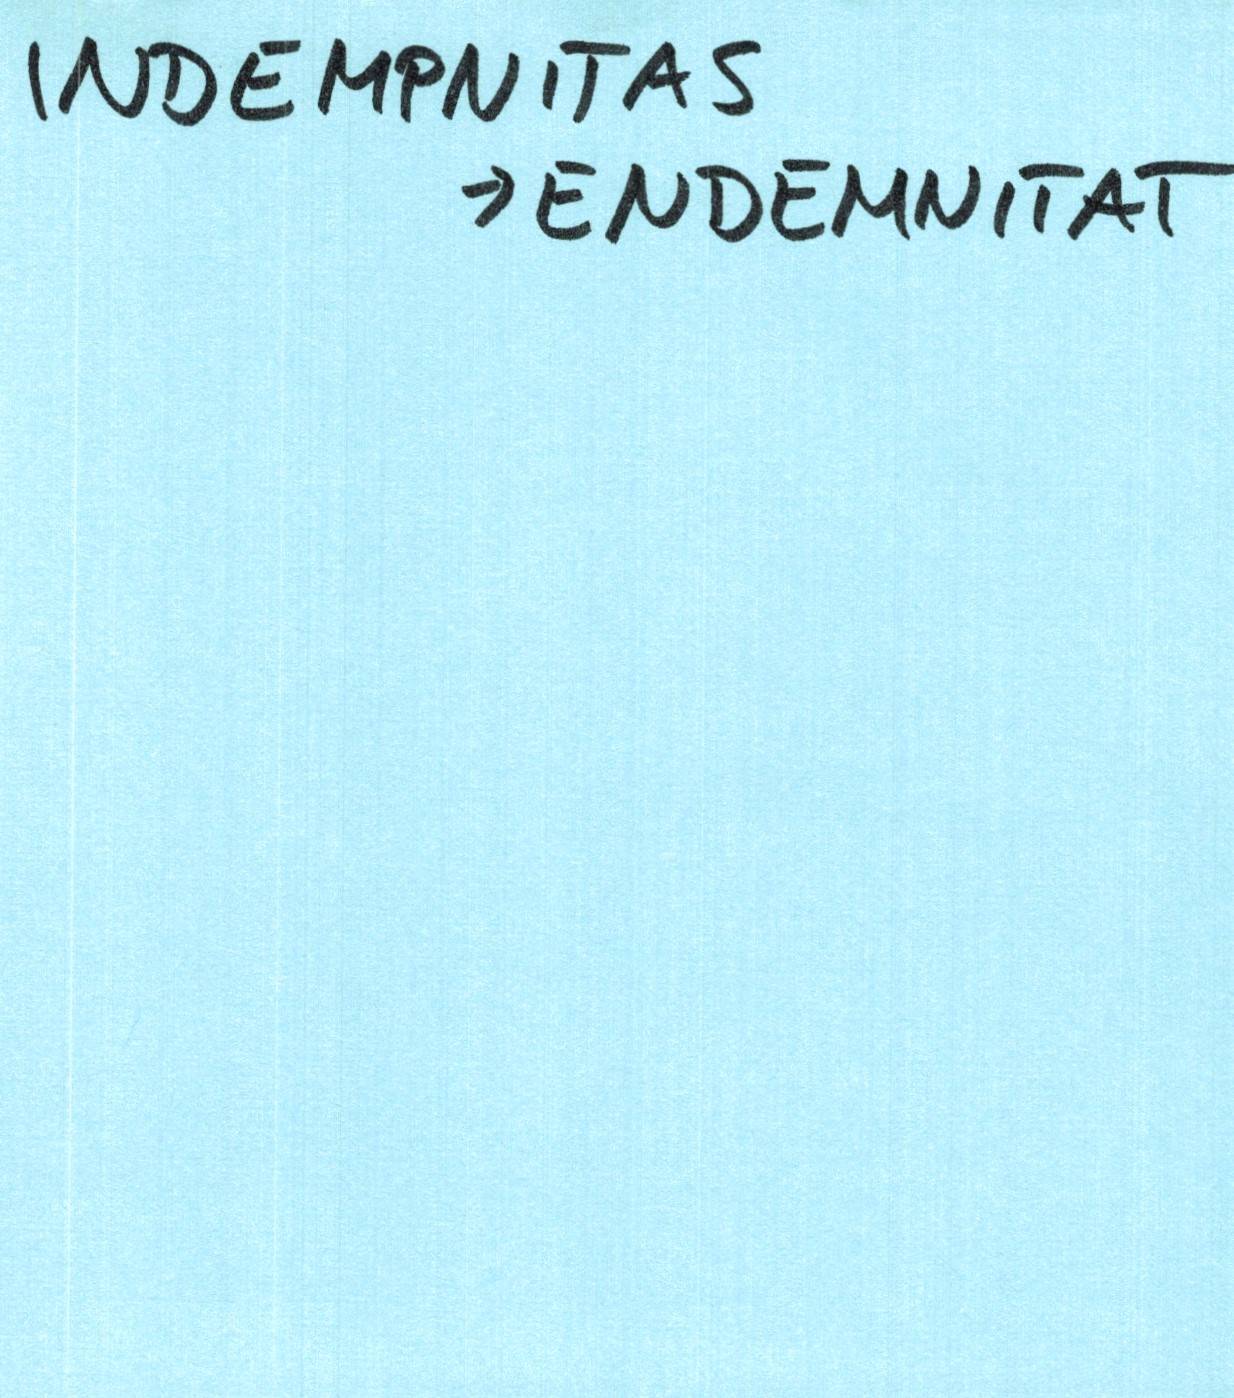 INDEMPNITAS
→ ENDEMNITAT